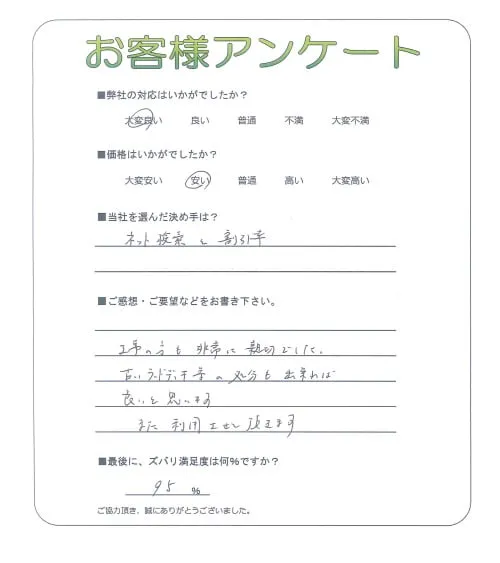 お客様アンケート
■弊社の対応はいかがでしたか？
大変良い 良い 普通 不満 大変不満
■価格はいかがでしたか？
大変安い 安い 普通 高い 大変高い
■当社を選んだ決め手は？
ネット検索と割引率
■ご感想・ご要望などをお書き下さい。
工事の方も非常に親切でした。
古い 等の処分も出来れば
良いと思います
また利用させて頂きます
■最後に、ズバリ満足度は何%ですか？
95 %
ご協力頂き、誠にありがとうございました。